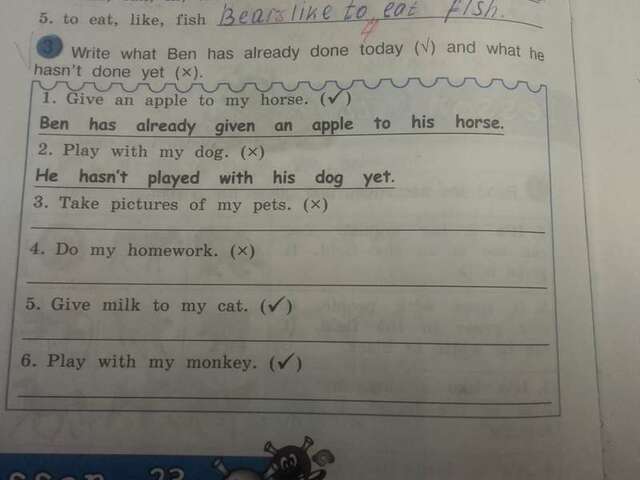 5. to eat, like, fish Bears like to eat fish.
4
3 Write what Ben has already done today (√) and what he
hasn't done yet (×).
1. Give an apple to my horse. (✓)
Ben has already given an apple to his horse.
2. Play with my dog. (×)
He hasn't played with his dog yet.
3. Take pictures of my pets. (×)
4. Do my homework. (×)
5. Give milk to my cat. (✓)
6. Play with my monkey. (✓)
sson 23